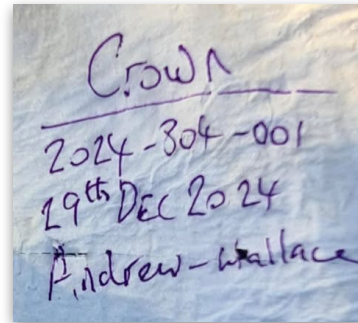 Crown
2024-304-001
29th DEC 2024
Andrew-Wallace